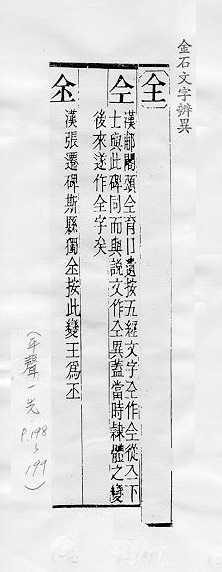 金石文字辨異
全
仝
漢郙閣頌仝育□遺按五經文字仝作全從入下
士與此碑同而與說文作仝異蓋當時隸體之變
後來遂作全字矣
漢張遷碑斯縣獨全按此變王為丕
(平聲一先
P.198~199)